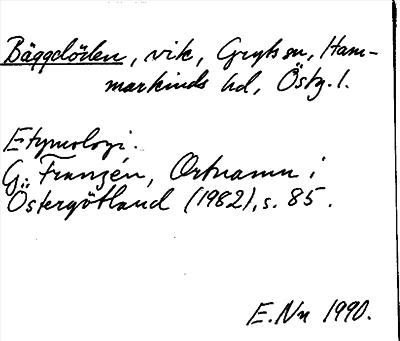 Bäggdöden, vik, Gryts sn, Ham-
markinds hd, Östg. l.
Etymologi.
G. Franzén, Ortnamn i
Östergötland (1982), s. 85.
E. Nn 1990.